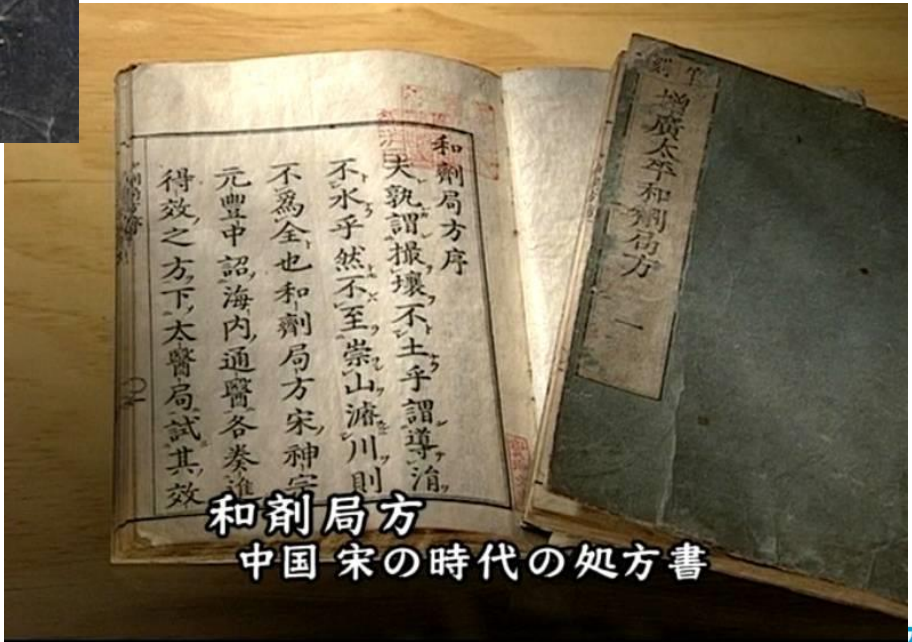 和劑局方序
夫孰謂撮壤不土乎謂導涓
不水乎然不至崇山濬川則
不爲全也和劑局方宋神宗
元豐中詔海内通醫各奏進
得效之方下太醫局試其效
増廣太平和劑局方
一
和剤局方
中国 宋の時代の処方書